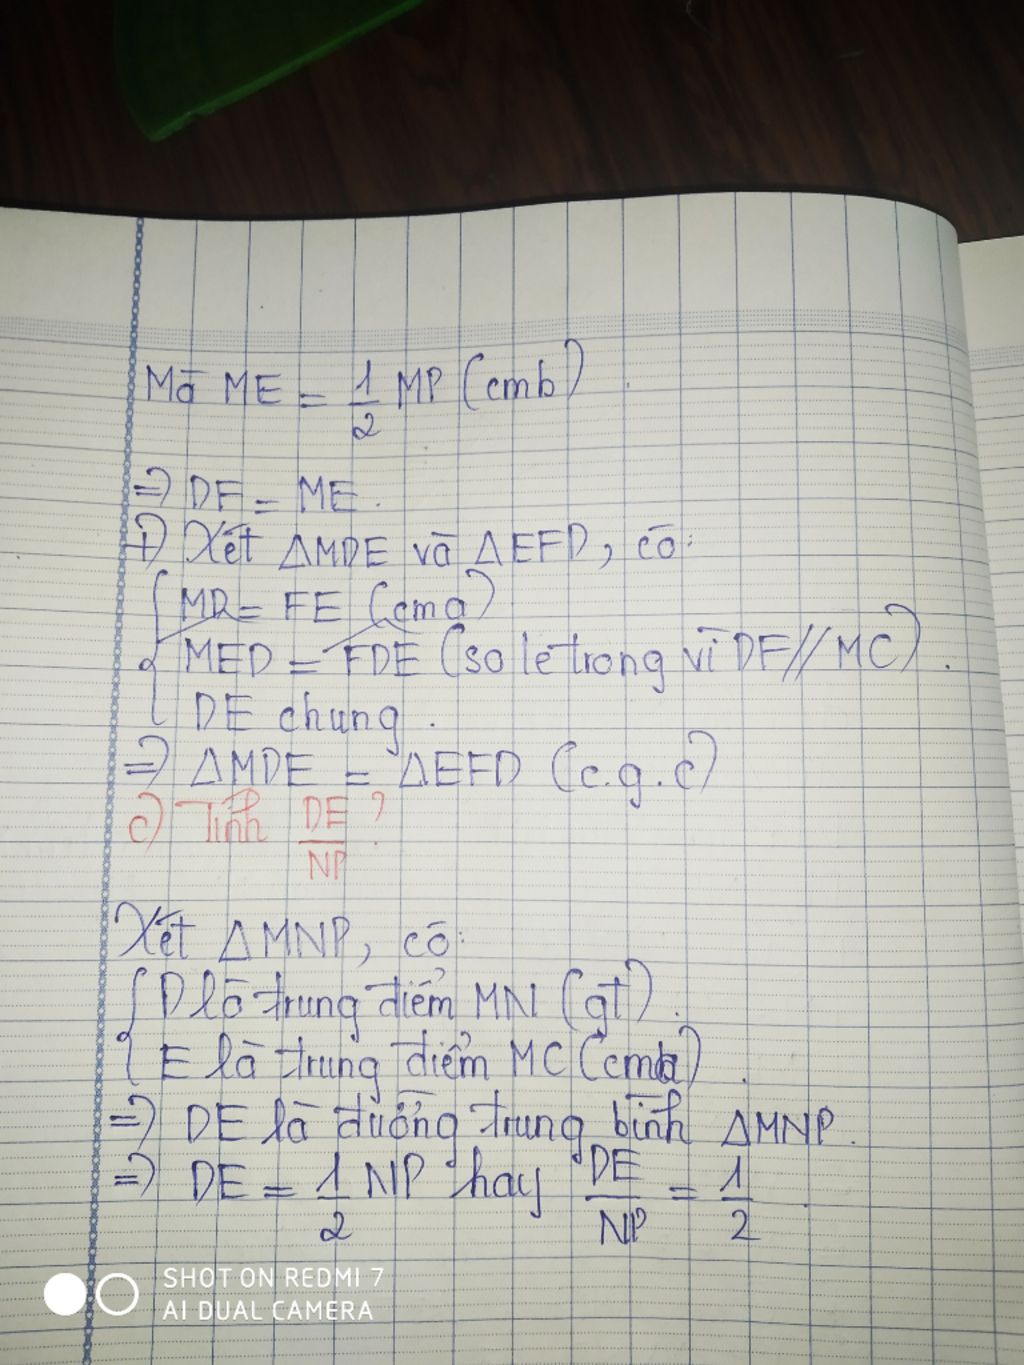 Mà ME = 1/2 MP (cmb)
=> DF = ME.
+) Xét ΔMDE và ΔEFD, có:
MD = FE (cma)
MED = FDE (so le trong vì DF // MC).
DE chung.
=> ΔMDE = ΔEFD (c.g.c)
c) Tính DE/NP?
Xét ΔMNP, có:
D là trung điểm MN (gt).
E là trung điểm MC (cmb).
=> DE là đường trung bình ΔMNP.
=> DE = 1/2 NP hay DE/NP = 1/2
SHOT ON REDMI 7
AI DUAL CAMERA